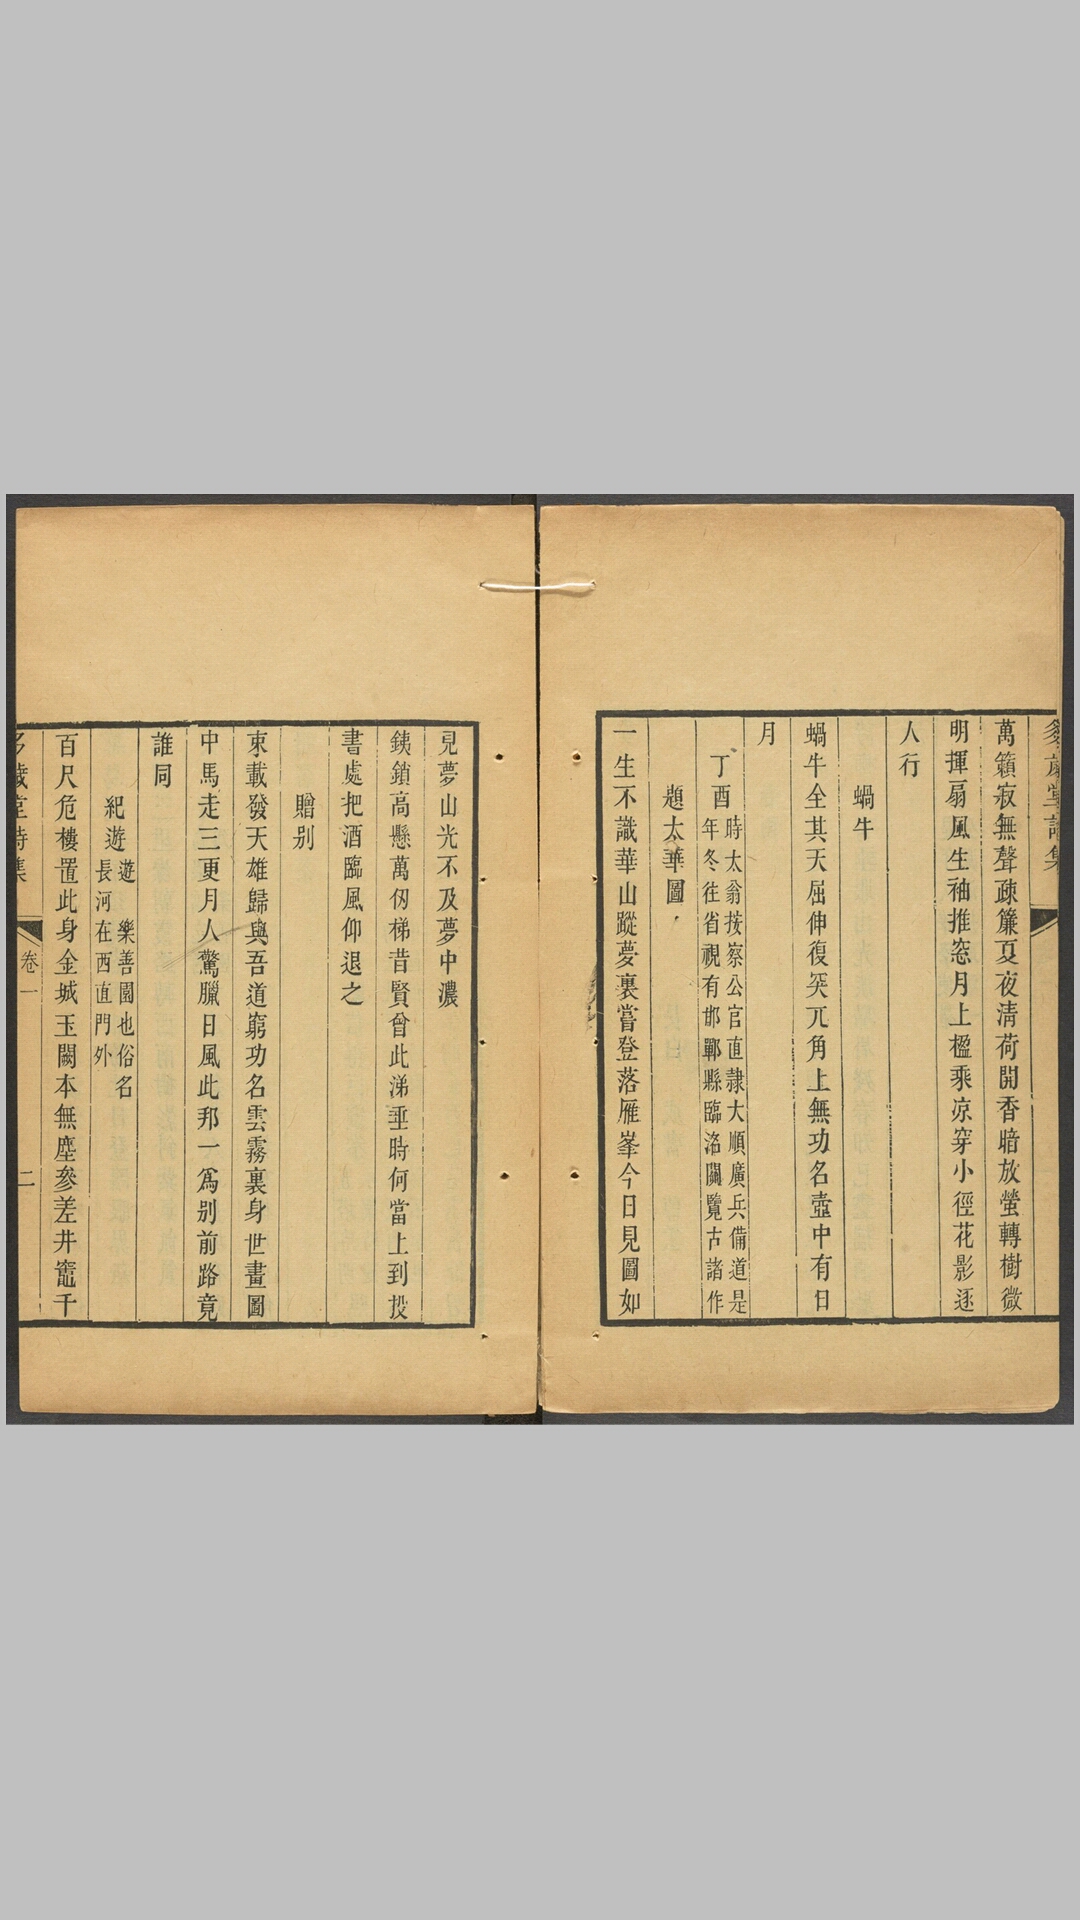 多歲堂詩集
萬籟寂無聲疎簾夏夜淸荷開香暗放螢轉樹微
明揮扇風生袖推窓月上楹乘凉穿小徑花影逐
人行
蝸牛
蝸牛全其天屈伸復突兀角上無功名壺中有日
月
丁酉時太翁按察公官直隸大順廣兵備道是
年冬往省視有邯鄲縣臨洺關覽古諸作
題太華圖
一生不識華山蹤夢裏嘗登落雁峯今日見圖如
見夢山光不及夢中濃
銕鎖高懸萬仭梯昔賢曾此涕垂時何當上到投
書處把酒臨風仰退之
贈别
束載發天雄歸與吾道窮功名雲霧裏身世畫圖
中馬走三更月人驚臘日風此邦一爲别前路竟
誰同
紀遊遊樂善園也俗名
長河在西直門外
百尺危樓置此身金城玉闕本無塵參差井竈千
多歲堂詩集
卷一
二